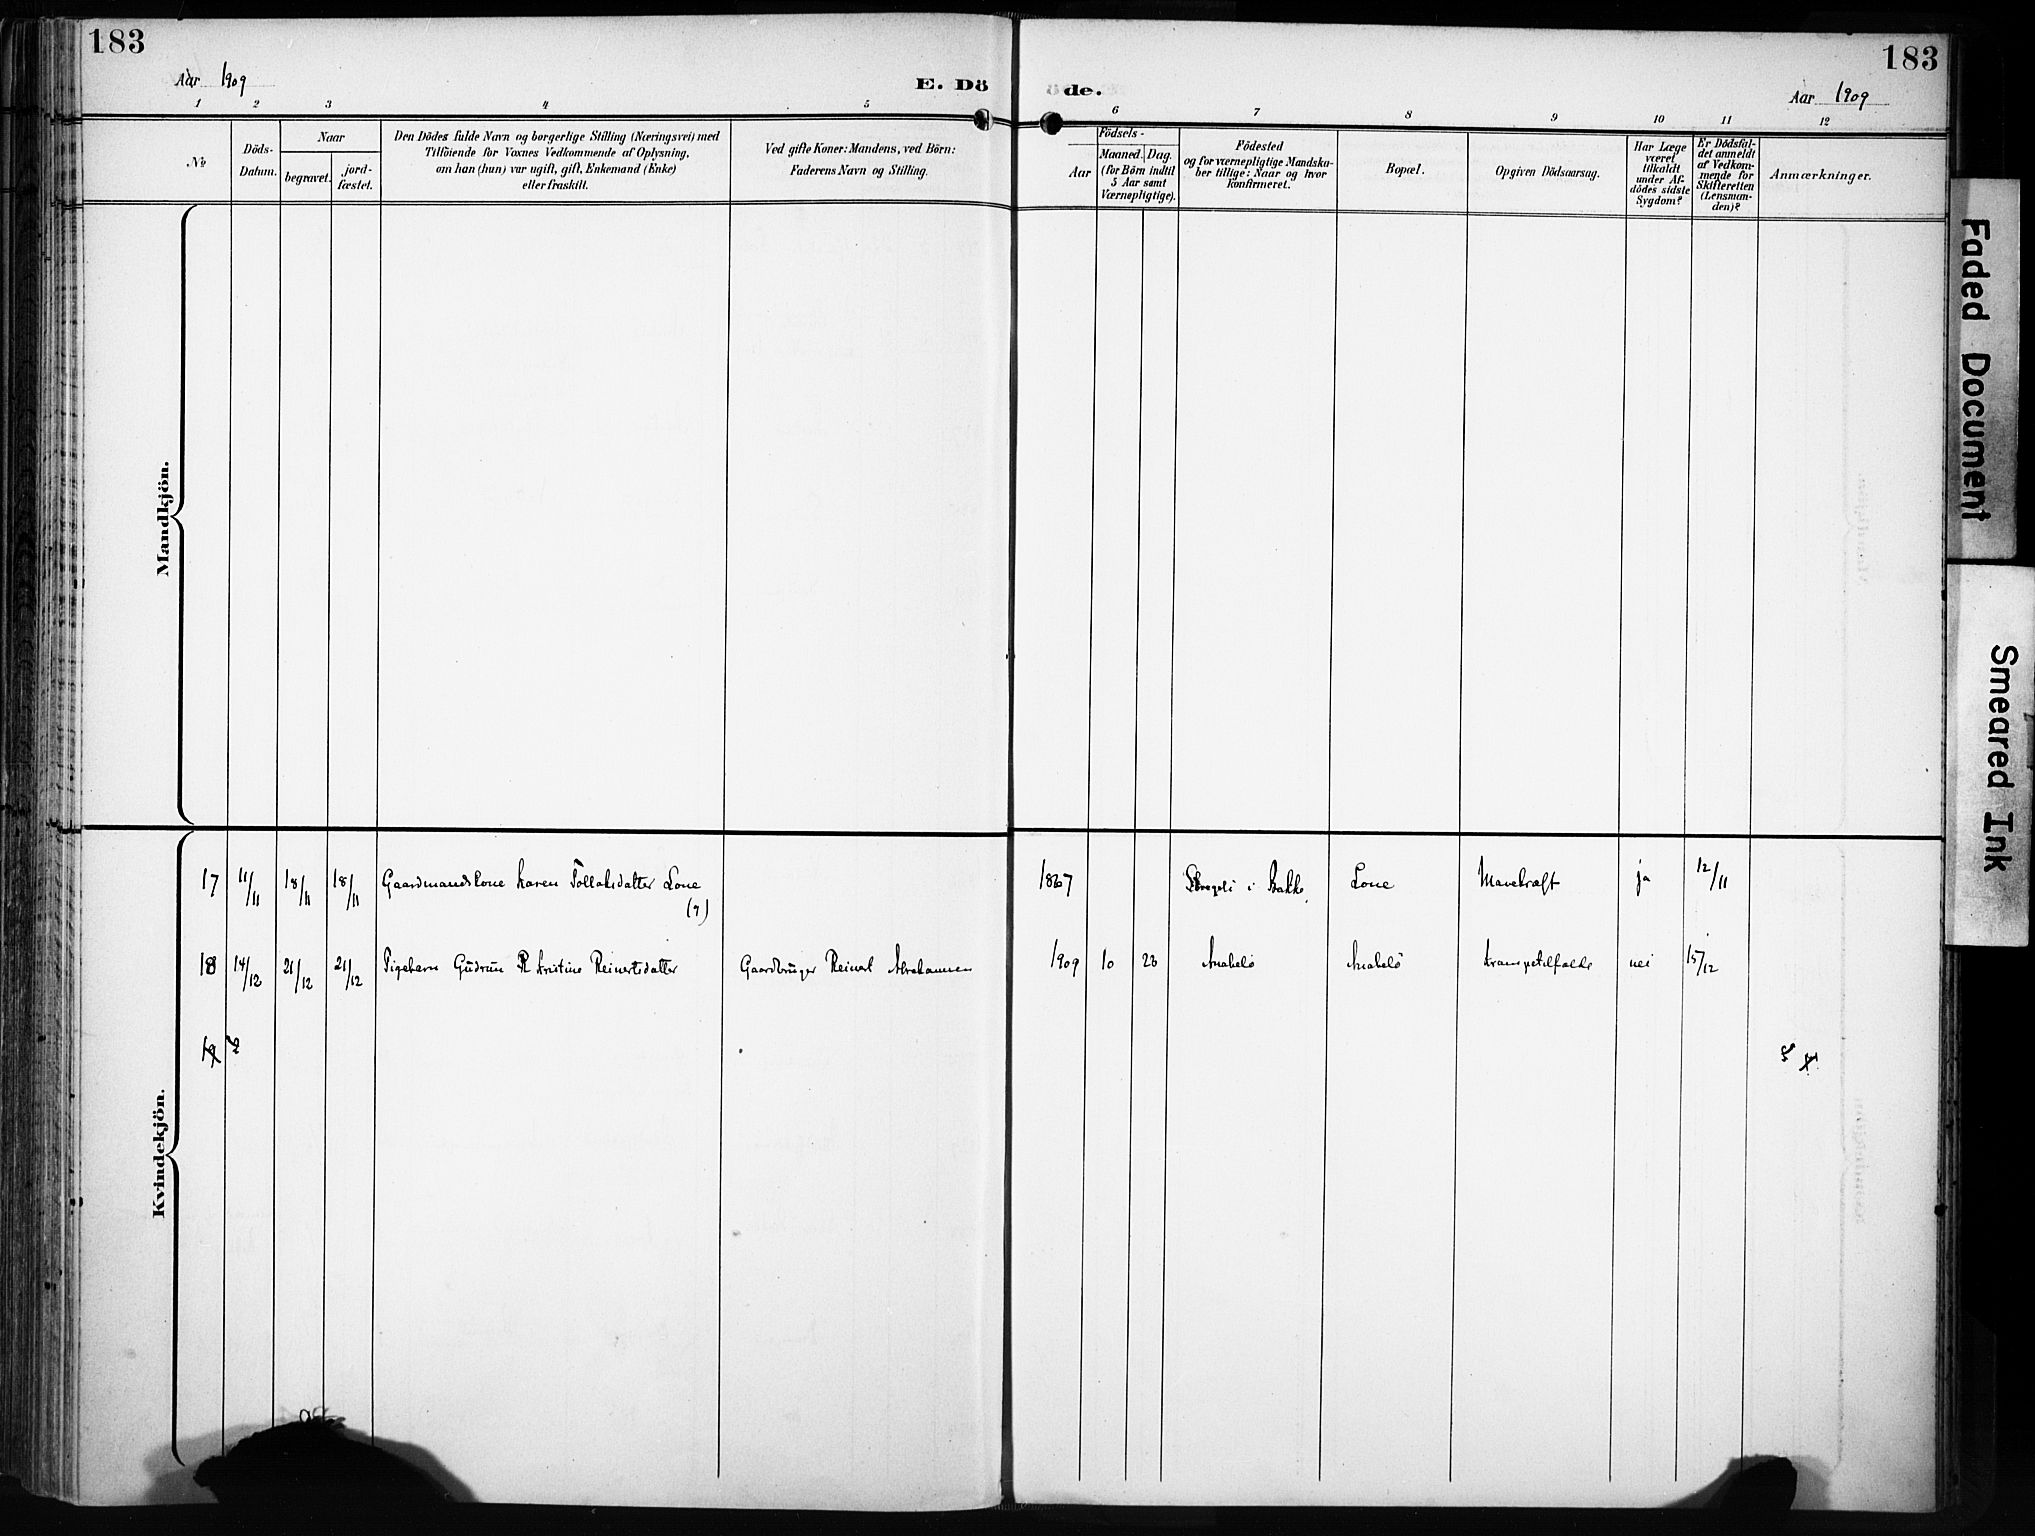 183
Aar 1909
E. Dö
1 2 3 4 5
No
Döds-
Datum.
Naar
begravet.
jord-
fæstet.
Den Dödes fulde Navn og borgerlige Stilling (Næringsvei) med
Tilföiende for Voxnes Vedkommende af Oplysning,
om han (hun) var ugift, gift, Enkemand (Enke)
eller fraskilt.
Ved gifte Koner: Mandens, ved Börn:
Faderens Navn og Stilling.
Mandkjön.
Kvindekjön.
17 11/11 18/11 18/11 Gaardmandskone Karen Tollaksdatter Lone
18 14/12 21/12 21/12 Pigebarn Gudrun Kristine Reinertsdatter Gaardbruger Reinert Abrahamsen
19
183
öde.
Aar 1909
6 7 8 9 10 11 12
Födsels-
Aar
Maaned. Dag.
(for Börn indtil
5 Aar samt
Værnepligtige).
Födested
og for værnepligtige Mandska-
ber tillige: Naar og hvor
konfirmeret.
Bopæl.
Opgiven Dödsaarsag.
Har Læge
været
tilkaldt
under Af-
dödes sidste
Sygdom?
Er Dödsfal-
det anmeldt
af Vedkom-
mende for
Skifteretten
(Lensman-
den)?
Anmærkninger.
1867 i Bakke Lone Mavekræft ja 12/11
1909 10 23 Anabelö Anabelö Krampetilfælde nei 15/12
Faded Document
Smeared Ink